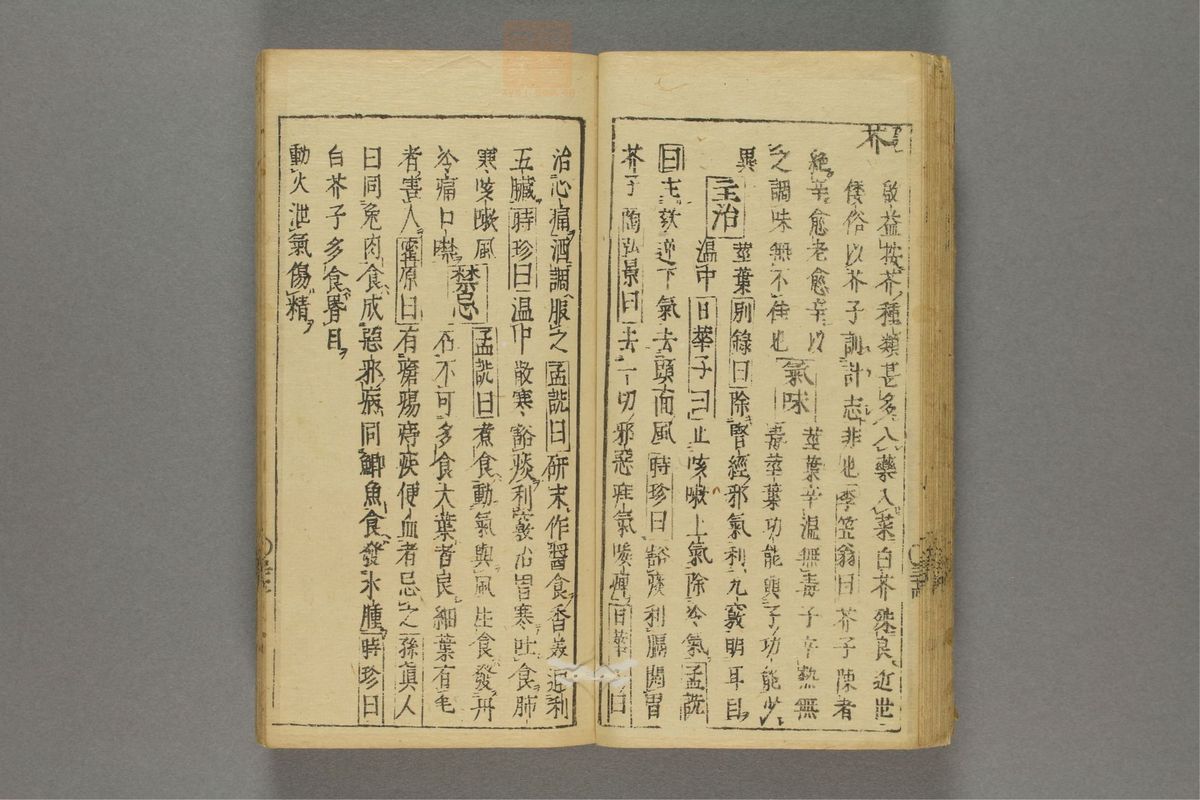 芥
啟益按芥種類甚多入藥入菜白芥𣓪良近世
倭俗以芥子訓計志非也李笠翁曰芥子陳者
絶辛愈老愈辛以
之調味無不佳也 氣味 莖葉辛温無毒子辛熱無
毒莖葉功能與子功能少
異
主治 莖葉別錄曰除腎經邪氣利九竅明耳目
温中日華子曰止咳嗽上氣除冷氣孟詵
曰主欬逆下氣去頭面風時珍曰豁痰利膈開胃
芥子陶弘景曰去一切邪惡疰氣喉痺日華子曰
治心痛酒調服之孟詵曰研末作醬食香美通利
五臟時珍曰温中散寒豁痰利竅治胃寒吐食肺
寒咳嗽風
冷痛口噤 禁忌 孟詵曰煮食動氣與風生食發丹
石不可多食大葉者良細葉有毛
者害人甯原曰有瘡瘍痔疾便血者忌之孫眞人
曰同兔肉食成惡邪病同鯽魚食發水腫時珍曰
白芥子多食昬目
動火泄氣傷精